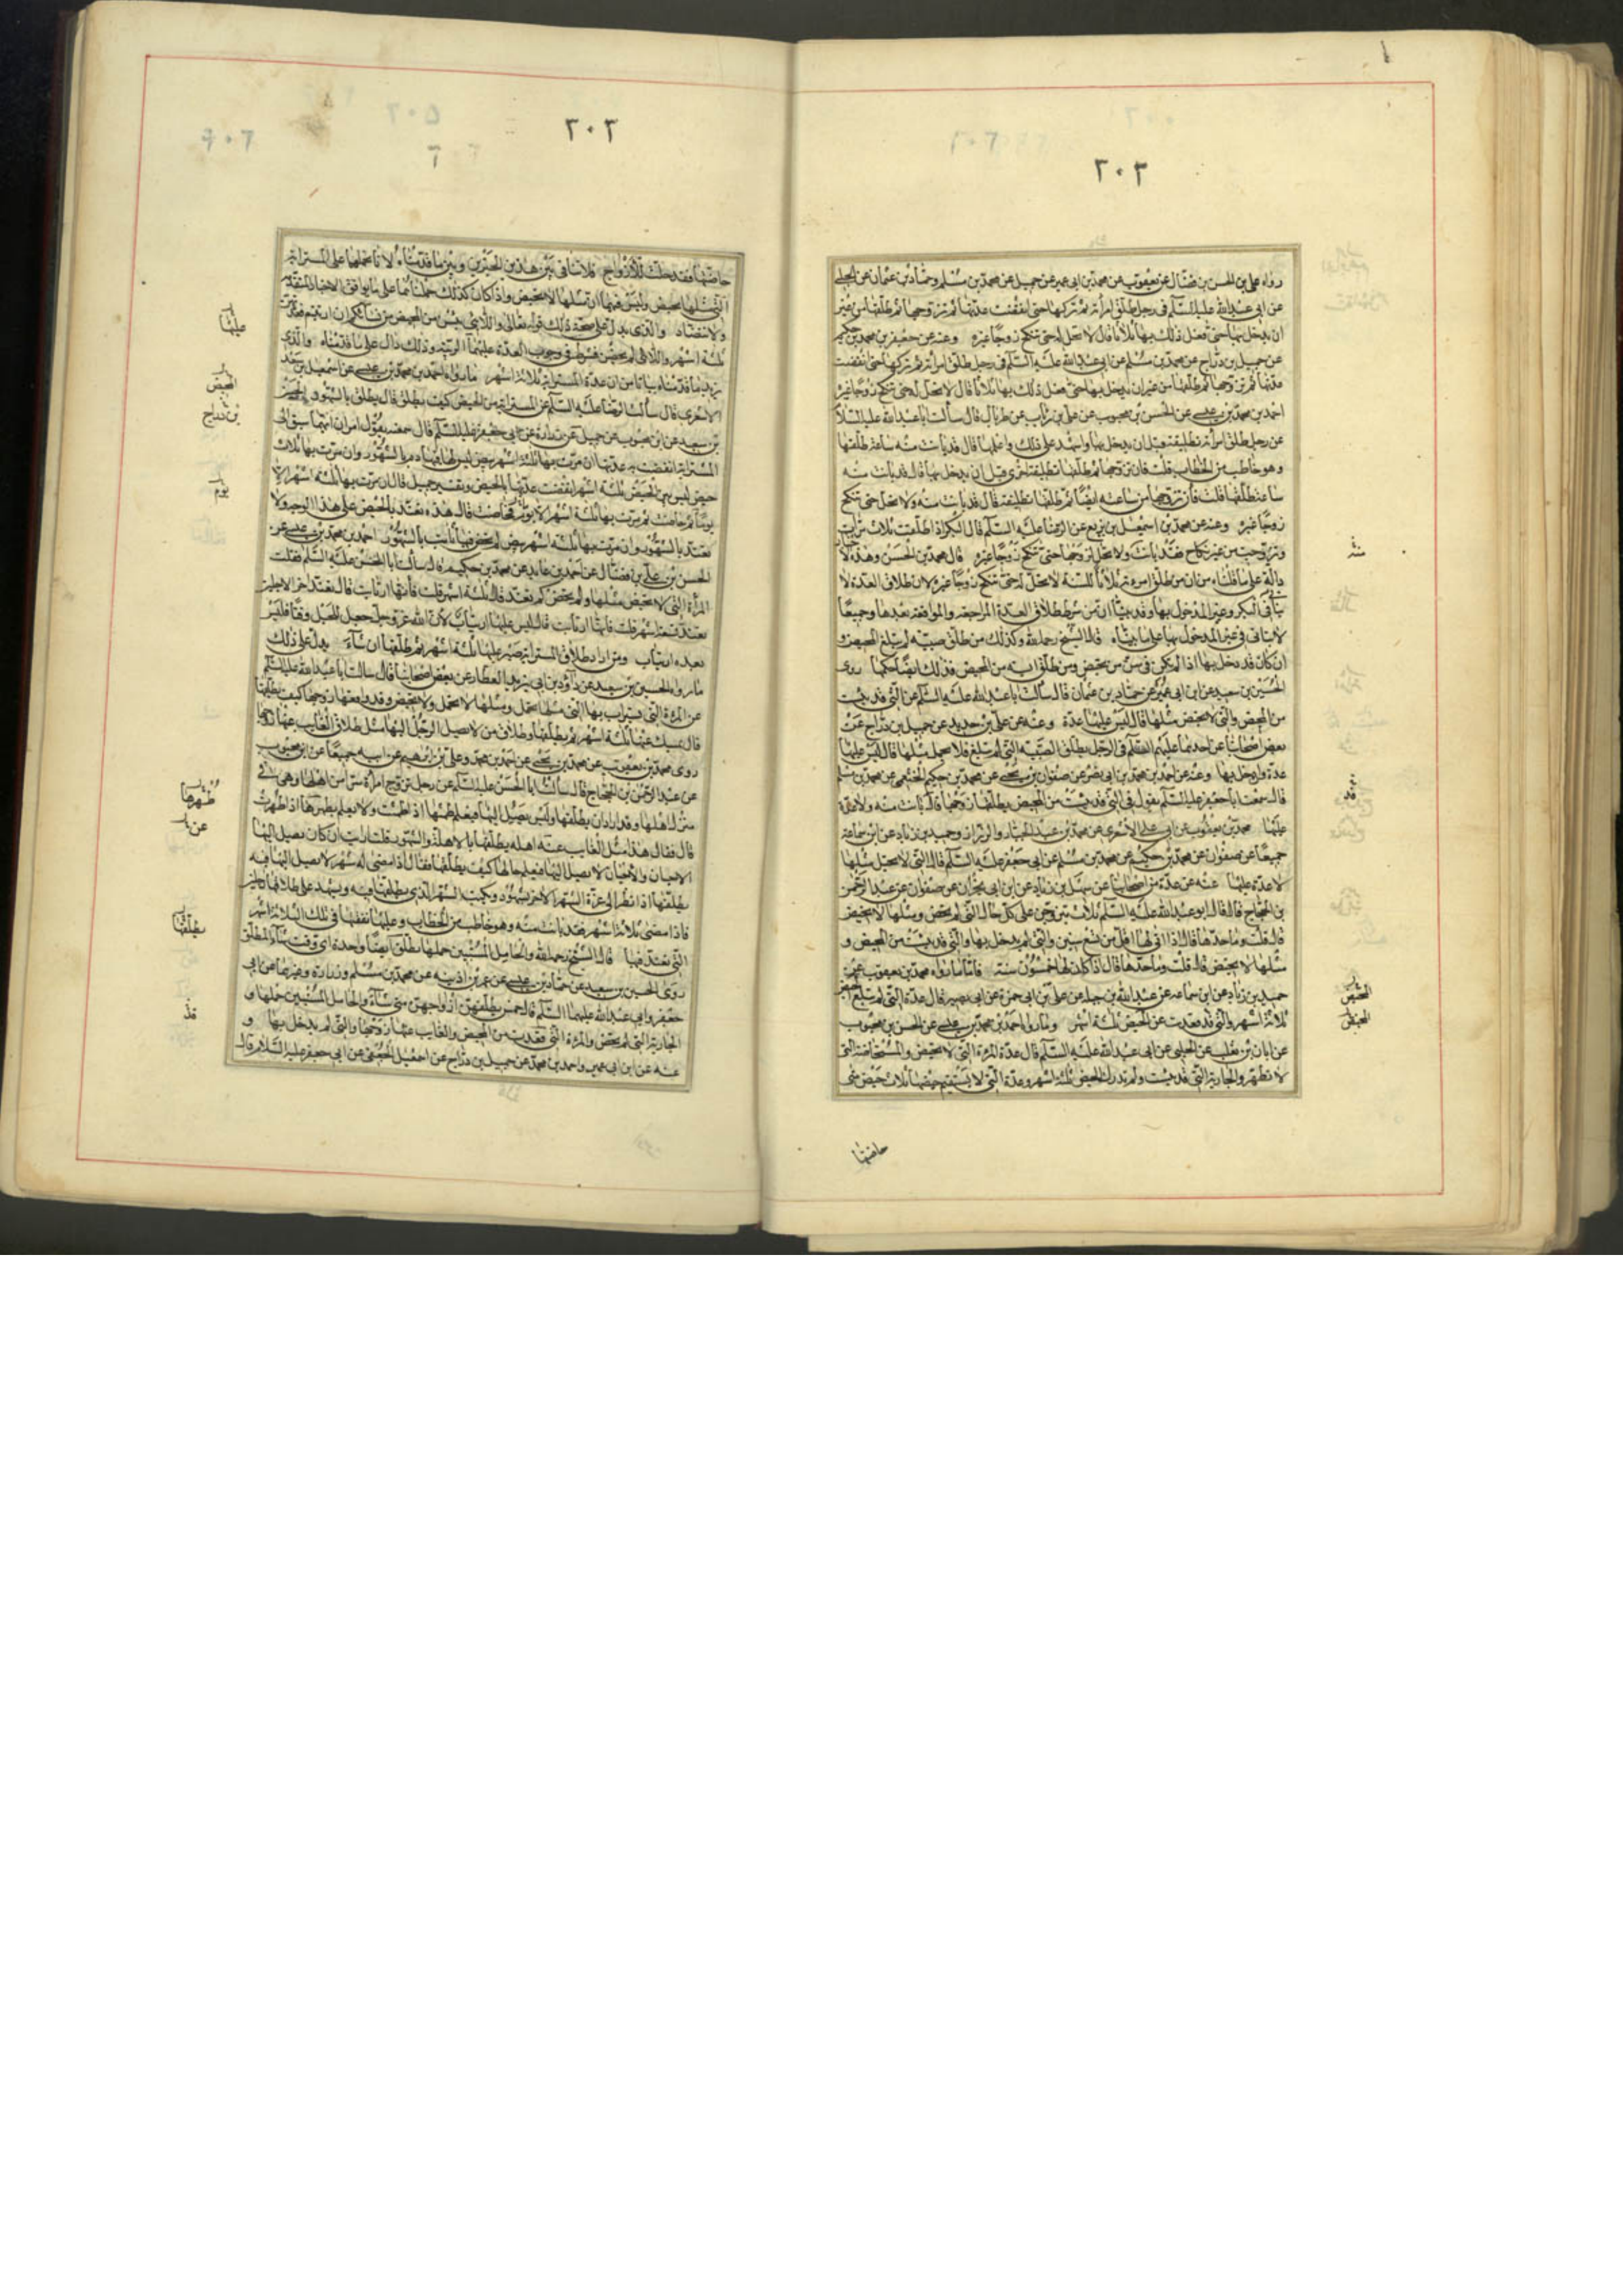 ٢٠٢
رواه علي بن الحسن بن فضال عن يعقوب عن محمد بن ابي عمير عن جميل عن محمد بن مسلم وحماد بن عثمان عن الحلبي
عن ابي عبد الله عليه السلم في رجل طلق امرأته ثم تركها حتى انقضت عدتها ثم تزوجها ثم طلقها من غير
ان يدخل بها حتى فعل ذلك بها ثلاثا قال لا تحل له حتى تنكح زوجا غيره وعنه عن جعفر بن محمد بن حكيم
عن جميل بن دراج عن محمد بن مسلم عن ابي عبد الله عليه السلم في رجل طلق امرأته ثم تركها حتى انقضت
عدتها ثم تزوجها ثم طلقها من غير ان يدخل بها حتى فعل ذلك بها ثلاثا قال لا تحل له حتى تنكح زوجا غيره
احمد بن محمد بن عيسى عن الحسن بن محبوب عن علي بن رئاب عن طربال قال سالت ابا عبد الله عليه السلا
عن رجل طلق امرأته تطليقة وقبل ان يدخل بها واشهد على ذلك واعلمها قال قد بانت منه ساعة طلقها
وهو خاطب من الخطاب قلت فان تزوجها ثم طلقها تطليقة اخرى قبل ان يدخل بها قال قد بانت منه
ساعة طلقها قلت فان تزوجها من ساعته ايضا ثم طلقها تطليقة قال قد بانت منه ولا تحل حتى تنكح
زوجا غيره وعنه عن محمد بن اسمعيل بن بزيع عن الرضا عليه السلم قال البكر اذا طلقت ثلاث مرات
وتزوجت من غير نكاح فقد بانت ولا تحل لزوجها حتى تنكح زوجا غيره قال محمد بن الحسن وهذه الاخبار
دالة على ما قلناه من ان من طلق امرأته ثلاثا للسنة لا تحل له حتى تنكح زوجا غيره لان طلاق العدة لا
يتأتى في البكر وغير المدخول بها وقد بينا ان من شرط طلاق العدة المراجعة والمواقعة بعدها وجميعا
لا يتاتى في غير المدخول بها على ما بيناه قال الشيخ رحمه الله وكذلك من طلق صبية لم تبلغ المحيض و
ان كان قد دخل بها اذا لم يكن في سن من تحيض ومن طلق ايسه من المحيض فذلك ايضا حكمها روى
الحسين بن سعيد عن ابن ابي عمير عن حماد بن عثمان قال سالت ابا عبد الله عليه السلم عن التي قد يئست
من المحيض والتي لا تحيض مثلها قال ليس عليها عدة وعنه عن علي بن حديد عن جميل بن دراج عن
بعض اصحابنا عن احدهما عليهم السلم في الرجل يطلق الصبيه التي لم تبلغ فلا تحمل مثلها قال ليس عليها
عدة وان دخل بها وعنه عن احمد بن محمد بن ابي نصر عن صفوان بن يحيى عن محمد بن حكيم الخثعمي عن محمد بن مسلم
قال سمعت ابا جعفر عليه السلم يقول في التي قد يئست من المحيض يطلقها زوجها قال بانت منه ولا عدة
عليها محمد بن يعقوب عن ابي علي الاشعري عن محمد بن عبد الجبار والرزاز وحميد بن زياد عن ابن سماعة
جميعا عن صفوان عن محمد بن حكيم عن محمد بن مسلم عن ابي جعفر عليه السلم قال التي لا تحبل مثلها
لا عدة عليها عنه عن عدة من اصحابنا عن سهل بن زياد عن ابن ابي نجران عن صفوان عن عبد الرحمن
بن الحجاج قال قال ابو عبد الله عليه السلم ثلاث يتزوجن على كل حال التي لم تحض ومثلها لا تحيض
قال قلت وما حدها قال اذا اتى لها اقل من تسع سنين والتي لم يدخل بها والتي قد يئست من المحيض و
مثلها لا تحيض قال قلت وما حدها قال اذا كان لها خمسون سنة فاما ما رواه محمد بن يعقوب عن
حميد بن زياد عن ابن سماعه عن عبد الله بن جبلة عن علي بن ابي حمزة عن ابي بصير قال عدة التي لم تبلغ المحيض
ثلاثة اشهر والتي قد قعدت عن المحيض ثلثة اشهر وما رواه احمد بن محمد بن عيسى عن الحسن بن محبوب
عن ابان بن تغلب عن الحلبي عن ابي عبد الله عليه السلم قال عدة المرءة التي لا تحيض والمستحاضة التي
لا تطهر والجارية التي قد يئست ولم تدرك المحيض ثلثة اشهر وعدة التي لا يستقيم حيضها ثلاث حيض متى
قد
المحيض
المحيض
حاضتها
٢٠٢
حاضتها فقد حلت للازواج فلا تنافي بين هذين الخبرين وبين ما قدمناه لانا نحملها على المسترابة
التي مثلها تحيض وليس فيهما ان مثلها لا تحيض واذا كان كذلك حملناهما على ما يوافق الاخبار المتقدمة
ولا تتضاد والذي يدل على صحة ذلك قوله تعالى واللائي يئسن من المحيض من نسائكم ان ارتبتم فعدتهن
ثلثة اشهر واللائي لم يحضن فشرط في وجوب العدة عليهما الريبة وذلك دال على ما قدمناه والذي
يزيد ما قدمناه بيانا من ان عدة المسترابة ثلاثة اشهر ما رواه احمد بن محمد بن عيسى عن اسمعيل بن سعد
الاشعري قال سالت الرضا عليه السلم عن المسترابة من المحيض كيف تطلق قال يطلق بالشهود الحسين
بن سعيد عن ابن محبوب عن جميل عن زرارة عن ابي جعفر عليه السلم قال سمعته يقول امران ايهما سبق الى
المسترابة انقضت به عدتها ان مرت بها ثلثة اشهر بيض ليس فيها دم بالشهور وان مرت بها ثلاث
حيض ليس بين الحيض ثلثة اشهر انقضت عدتها بالحيض وتفسير جميل قال ان مرت بها ثلثة اشهر الا
يوما ثم حاضت ثم مرت بها ثلثة اشهر الا يوما فحاضت قال هذه تعتد بالحيض على هذا الوجه ولا
تعتد بالشهور وان مرت بها ثلثة اشهر بيض لم تحض فيها بانت بالشهور احمد بن محمد بن عيسى عن
الحسن بن علي بن فضال عن احمد بن عايد عن محمد بن حكيم قال سالت ابا الحسن عليه السلم فقلت
المرأة التي لا تحيض مثلها ولم تحض كم تعتد قال ثلثة اشهر قلت فانها ارتابت قال تعتد اخر الاجلين
تعتد تسعة اشهر قلت فانها ارتابت قال ليس عليها ارتياب لان الله عز وجل جعل للحبل وقتا فليس
بعده ارتياب ومن اراد طلاق المسترابة صبر عليها ثلثة اشهر ثم طلقها ان شاء يدل على ذلك
ما رواه الحسين بن سعيد عن داود بن ابي يزيد العطار عن بعض اصحابنا قال سالت ابا عبد الله عليه السلم
عن المرأة التي يستراب بها التي مثلها تحمل ومثلها لا تحمل ولا تحيض وقد واقعها زوجها كيف يطلقها
قال يمسك عنها ثلثة اشهر ثم يطلقها وطلاق من لا يصل الرجل اليها مثل طلاق الغايب عنها زوجها
روى محمد بن يعقوب عن محمد بن يحيى عن احمد بن محمد وعلي بن ابراهيم عن ابيه جميعا عن ابن محبوب
عن عبد الرحمن بن الحجاج قال سالت ابا الحسن عليه السلم عن رجل تزوج امرأة سرا من اهلها وهي في
منزل اهلها وقد اراد ان يطلقها وليس يصل اليها فيعلم طمثها اذا طمثت ولا يعلم بطهرها اذا طهرت
قال فقال هذا مثل الغايب عنه اهله يطلقها بالاهلة والشهور قلت ارايت ان كان يصل اليها
الاحيان والاحيان لا يصل اليها فيعلم حالها كيف يطلقها فقال اذا مضى له شهر لا يصل اليها فيه
يطلقها اذا نظر الى غرة الشهر الاخر بشهود ويكتب الشهر الذي يطلقها فيه ويشهد على طلاقها رجلين
فاذا مضى ثلاثة اشهر فقد بانت منه وهو خاطب من الخطاب وعليه نفقتها في تلك الثلاثة اشهر
التي تعتد فيها قال الشيخ رحمه الله والحامل المستبين حملها تطلق ايضا واحدة اي وقت شاء المطلق
روى الحسين بن سعيد عن حماد بن عيسى عن عمر بن اذينه عن محمد بن مسلم وزرارة وغيرهما عن ابي
جعفر وابي عبد الله عليهما السلم قال خمس يطلقهن ازواجهن متى شاء والحامل المستبين حملها و
الجارية التي لم تحض والمرءة التي قعدت من المحيض والغايب عنها زوجها والتي لم يدخل بها و
عنه عن ابن ابي عمير واحمد بن محمد عن جميل بن دراج عن اسمعيل الجعفي عن ابي جعفر عليه السلام قال
عليها
الحيض
بن دراج
يوم
طهرها
عن
يطلقها